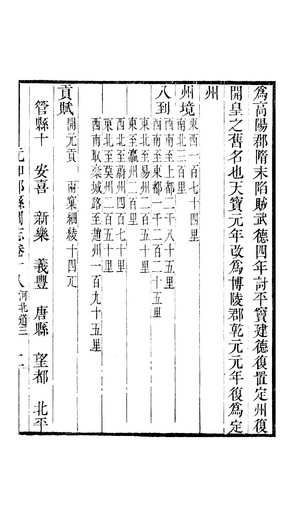 爲高陽郡隋末陷賊武德四年討平竇建德復置定州復
開皇之舊名也天寶元年改爲博陵郡乾元元年復爲定
州
州境
東西一百七十四里
南北三百里
八到
西南至上都二千八十五里
西南至東都一千二百二十五里
東北至易州二百五十里
東至瀛州二百里
東北至莫州二百五十里
西北至蔚州四百七十里
西南取欒城路至趙州一百九十五里
貢賦
開元貢 兩窠細綾十四疋
管縣十 安喜 新樂 義豐 唐縣 望都 北平
元和郡縣圖志卷十八 河北道三